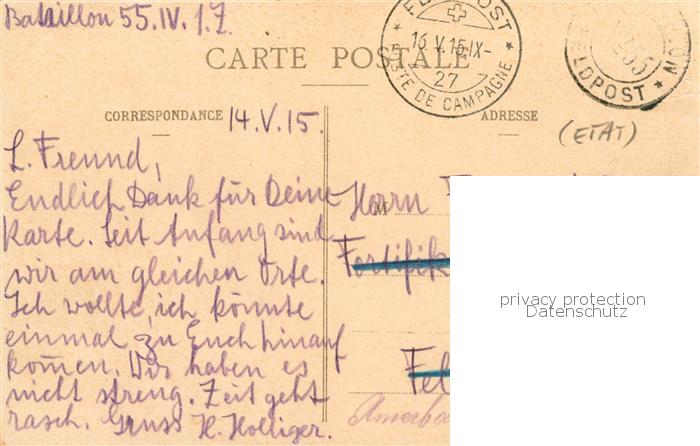 Bataillon 55. IV. 1. Z.
FELDPOST
16 V. 15. IX-
27
POSTE DE CAMPAGNE
FELDPOST
CARTE POSTALE
CORRESPONDANCE
ADRESSE
14. V. 15.
(ETAT)
L. Freund,
Endlich Dank für Deine
Karte. Seit Anfang sind
wir am gleichen Orte.
Ich wollte, ich könnte
einmal zu Euch hinauf
kom̄en. Wir haben es
nicht streng. Zeit geht
rasch. Gruss H. Holliger.
M Herrn
Fortifik
Fel
privacy protection
Datenschutz